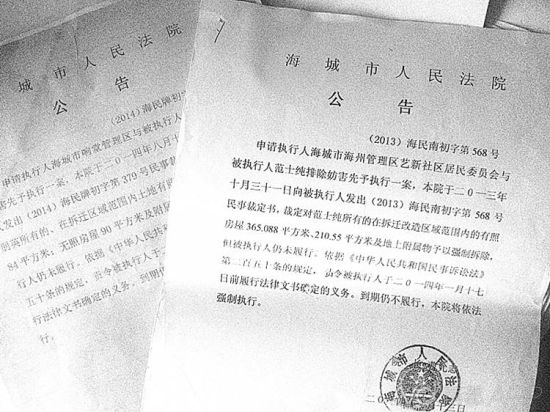 海城市人民法院
公告
（2013）海民南初字第568号
申请执行人海城市海州管理区艺新社区居民委员会与
被执行人范士纯排除妨害先予执行一案，本院于二〇一三年
十月三十一日向被执行人发出（2013）海民南初字第 568 号
民事裁定书，裁定对范士纯所有的在拆迁改造区域范围内的有照
房屋 365.088 平方米、210.55 平方米及地上附属物予以强制拆除，
但被执行人仍未履行。依据《中华人民共和国民事诉讼法》
第二百五十条的规定，责令被执行人于二〇一四年一月十七
日前履行法律文书确定的义务。到期仍不履行，本院将依法
强制执行。
海城市人民法院
城市人民法院
公告
（2014）海民牌初字
申请执行人海城市响堂管理区与被执行人
先予执行一案，本院于二〇一四年八月十
人发出（2014）海民牌初字第 379 号民事裁
所有的、在拆迁区域范围内土地有
84 平方米；无照房屋 90 平方米及附
行人仍未履行。依据《中华人民共
五十条的规定，责令被执行人于二
行法律文书确定的义务。到期
行。